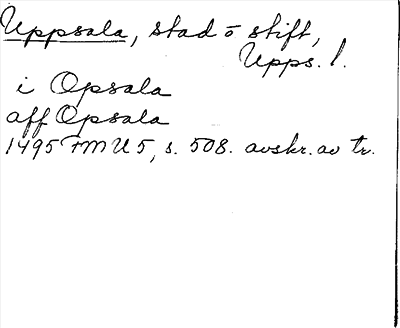 Uppsala, stad o stift,
Upps. l.
i Opsala
aff Opsala
1495 FMU 5, s. 508. avskr. av tr.